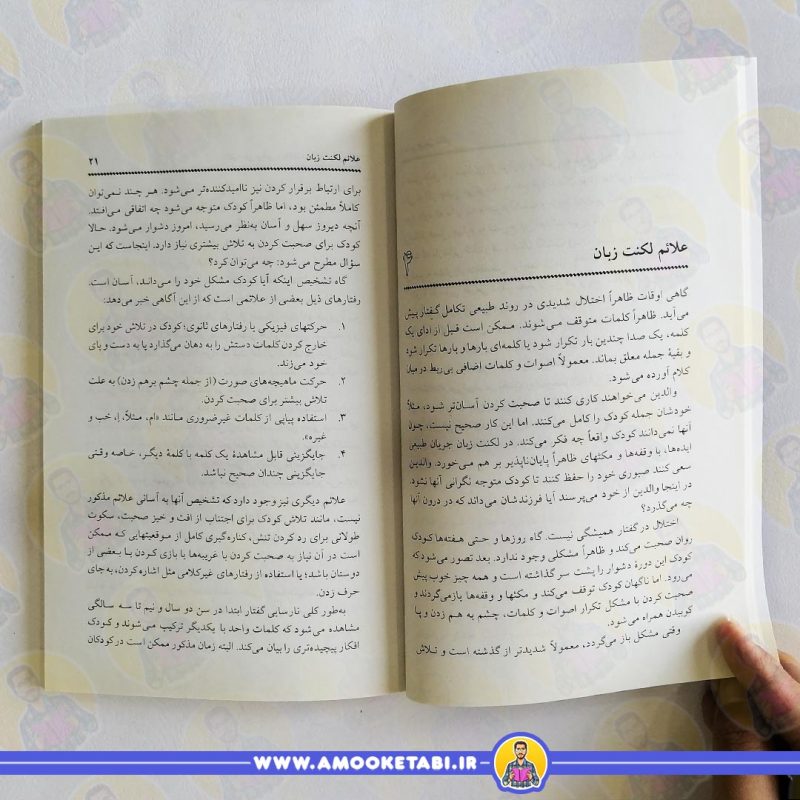 علائم لکنت زبان
۳
گاهی اوقات ظاهراً اختلال شدیدی در روند طبیعی تکامل گفتار پیش
می‌آید. ظاهراً کلمات متوقف می‌شوند. ممکن است قبل از ادای یک
کلمه، یک صدا چندین بار تکرار شود یا کلمه‌ای بارها و بارها تکرار شود
و بقیهٔ جمله معلق بماند. معمولاً اصوات و کلمات اضافی بی‌ربط در میان
کلام آورده می‌شود.
والدین می‌خواهند کاری کنند تا صحبت کردن آسان‌تر شود، مثلاً
خودشان جمله کودک را کامل می‌کنند. اما این کار صحیح نیست، چون
آنها نمی‌دانند کودک واقعاً چه فکر می‌کند. در لکنت زبان جریان طبیعی
ایده‌ها، با وقفه‌ها و مکثهای ظاهراً پایان‌ناپذیر بر هم می‌خورد. والدین
سعی کنند صبوری خود را حفظ کنند تا کودک متوجه نگرانی آنها نشود.
در اینجا والدین از خود می‌پرسند آیا فرزندشان می‌داند که در درون آنها
چه می‌گذرد؟
اختلال در گفتار همیشگی نیست. گاه روزها و حتی هفته‌ها کودک
روان صحبت می‌کند و ظاهراً مشکلی وجود ندارد. بعد تصور می‌شود که
کودک این دورهٔ دشوار را پشت سر گذاشته است و همه چیز خوب پیش
می‌رود. اما ناگهان کودک توقف می‌کند و مکثها و وقفه‌ها بازمی‌گردند و
صحبت کردن با مشکل تکرار اصوات و کلمات، چشم به هم زدن و پا
کوبیدن همراه می‌شود.
وقتی مشکل باز می‌گردد، معمولاً شدیدتر از گذشته است و تلاش
علائم لکنت زبان ۲۱
برای ارتباط برقرار کردن نیز ناامیدکننده‌تر می‌شود. هر چند نمی‌توان
کاملاً مطمئن بود، اما ظاهراً کودک متوجه می‌شود چه اتفاقی می‌افتد.
آنچه دیروز سهل و آسان به‌نظر می‌رسید، امروز دشوار می‌شود. حالا
کودک برای صحبت کردن به تلاش بیشتری نیاز دارد. اینجاست که این
سؤال مطرح می‌شود: چه می‌توان کرد؟
گاه تشخیص اینکه آیا کودک مشکل خود را می‌داند، آسان است.
رفتارهای ذیل بعضی از علائمی است که از این آگاهی خبر می‌دهد:
۱. حرکتهای فیزیکی یا رفتارهای ثانوی؛ کودک در تلاش خود برای
خارج کردن کلمات دستش را به دهان می‌گذارد یا به دست و پای
خود می‌زند.
۲. حرکت ماهیچه‌های صورت (از جمله چشم برهم زدن) به علت
تلاش بیشتر برای صحبت کردن.
۳. استفاده پیاپی از کلمات غیرضروری مانند «ام، مثلاً، اِ، خب و
غیره».
۴. جایگزینی قابل مشاهدهٔ یک کلمه با کلمهٔ دیگر، خاصه وقتی
جایگزینی چندان صحیح نباشد.
علائم دیگری نیز وجود دارد که تشخیص آنها به آسانی علائم مذکور
نیست، مانند تلاش کودک برای اجتناب از افت و خیز صحبت، سکوت
طولانی برای رد کردن تنش، کناره‌گیری کامل از موقعیتهایی که ممکن
است در آن نیاز به صحبت کردن با غریبه‌ها یا بازی کردن با بعضی از
دوستان باشد؛ یا استفاده از رفتارهای غیرکلامی مثل اشاره کردن، به‌جای
حرف زدن.
به‌طور کلی نارسایی گفتار ابتدا در سن دو سال و نیم تا سه سالگی
مشاهده می‌شود که کلمات واحد با یکدیگر ترکیب می‌شوند و کودک
افکار پیچیده‌تری را بیان می‌کند. البته زمان مذکور ممکن است در کودکان
WWW.AMOOKETABI.IR